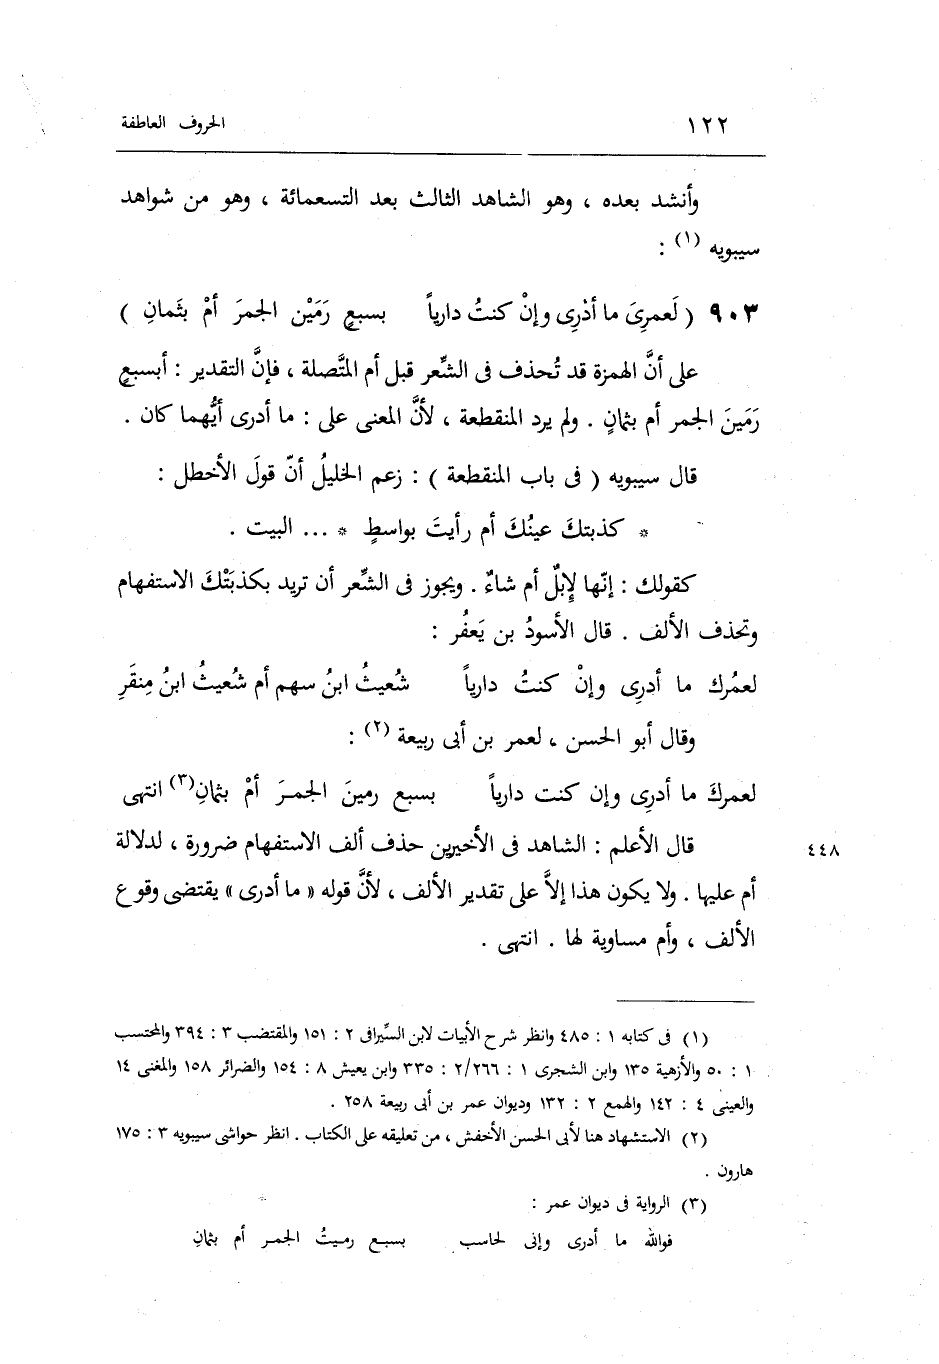 ١٢٢ الحروف العاطفة
وأنشد بعده ، وهو الشاهد الثالث بعد التسعمائة ، وهو من شواهد
سيبويه (١) :
٩٠٣ ( لَعمرِىَ ما أدْرِى وإنْ كنتُ دارياً بسبعٍ رَمَيْن الجمرَ أمْ بثَمانِ )
على أنَّ الهمزة قد تُحذف فى الشِّعر قبل أم المتَّصلة ، فإنَّ التقدير : أبسبعٍ
رَمَينَ الجمر أم بثمانٍ . ولم يرد المنقطعة ، لأنَّ المعنى على : ما أدرى أيُّهما كان .
قال سيبويه ( فى باب المنقطعة ) : زعم الخليلُ أنّ قولَ الأخطل :
* كذبتكَ عينُكَ أم رأيتَ بواسطٍ * ... البيت .
كقولك : إنّها لإبلٌ أم شاءٌ . ويجوز فى الشِّعر أن تريد بكذبَتْكَ الاستفهام
وتحذف الألف . قال الأسودُ بن يَعفُر :
لعمُرك ما أدرِى وإنْ كنتُ دارياً شُعيثُ ابنُ سهم أم شُعيثُ ابنُ مِنقَرِ
وقال أبو الحسن ، لعمر بن أبى ربيعة (٢) :
لعمركَ ما أدرِى وإن كنت دارياً بسبع رمينَ الجمـرَ أمْ بثمانِ(٣) انتهى
قال الأعلم : الشاهد فى الأخيرين حذف ألف الاستفهام ضرورة ، لدلالة ٤٤٨
أم عليها . ولا يكون هذا إلاَّ على تقدير الألف ، لأنَّ قوله « ما أدرى » يقتضى وقوع
الألف ، وأم مساوية لها . انتهى .
(١) فى كتابه ١ : ٤٨٥ وانظر شرح الأبيات لابن السِّيرافى ٢ : ١٥١ والمقتضب ٣ : ٣٩٤ والمحتسب
١ : ٥٠ والأزهية ١٣٥ وابن الشجرى ١ : ٢/٢٦٦ : ٣٣٥ وابن يعيش ٨ : ١٥٤ والضرائر ١٥٨ والمغنى ١٤
والعينى ٤ : ١٤٢ والهمع ٢ : ١٣٢ وديوان عمر بن أبى ربيعة ٢٥٨ .
(٢) الاستشهاد هنا لأبى الحسن الأخفش ، من تعليقه على الكتاب . انظر حواشى سيبويه ٣ : ١٧٥
هارون .
(٣) الرواية فى ديوان عمر :
فوالله ما أدرى وإنى لحاسب بسبـع رميـتُ الجمـر أم بثمانِ